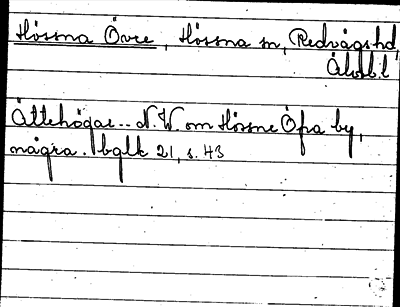 Hössna Övre, Hössna sn, Redvägs hd,
Älvsb. l
Ättehögar.. N.W. om Hössne Öfra by,
några. bglk 21, s. 43